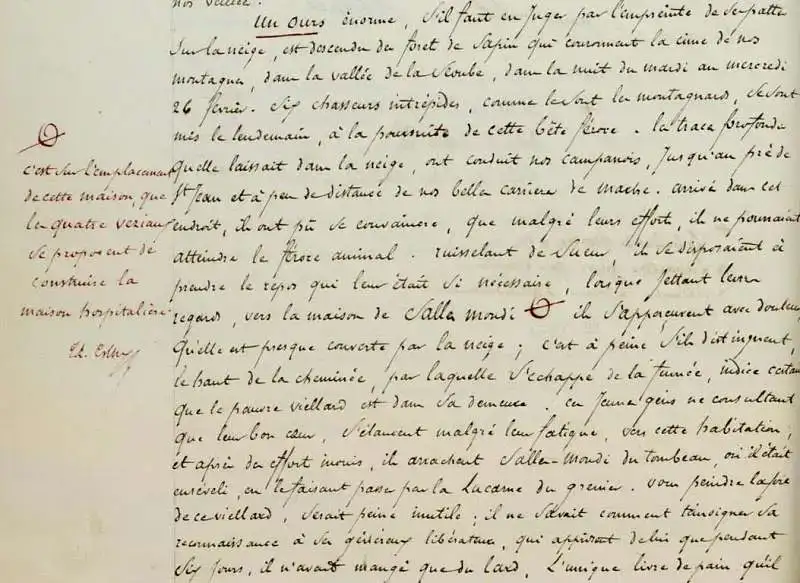 nos vallée.
Un Ours énorme, s'il faut en juger par l'empreinte de ses pattes
sur la neige, est descendu des foret de sapin qui couronnent la cime de nos
montagnes, dans la vallée de la Seoube, dans la nuit du mardi au mercredi
26 février. Six chasseurs intrépides, comme le sont les montagnards, se sont
mis le lendemain, à la poursuite de cette bête féroce. la trace profonde
qu'elle laissait dans la neige, ont conduit nos campanois, jusqu'au pré de
St Jean et à peu de distance de nos belles carrière de marbre. arrivé dans cet
endroit, il ont pû se convaincre, que malgré leurs efforts, il ne pourraient
atteindre le féroce animal. ruisselant de sueur, ils se disposaient à
prendre le repos qui leur était si nécessaire, lorsque jettant leurs
regards, vers la maison de Salles mondi il s'apperçurent avec douleur
qu'elle est presque couverte par la neige; c'est à peine s'ils distinguent,
le haut de la cheminée, par laquelle s'echappe de la fumée, indice certain
que le pauvre viellard est dans sa demeure. ces jeunes gens ne consultant
que leur bon cœur, s'élancent malgré leur fatigue, vers cette habitation;
et après des effort inouis, ils arrachent Salles-Mondi du tombeau, où il était
enséveli, en le faisant passer par la lucarne du grenier. vous peindre la joie
de ce viellard, serait peine inutile; il ne savait comment témoigner sa
reconnaissance à ses généreux libérateurs, qui apprirent de lui que pendant
six jours, il n'avait mangé que du lard. L'unique livre de pain qu'il
c'est sur l'emplacement
de cette maison, que
les quatre veziaux
se proposent de
construire la
maison hospitalière.